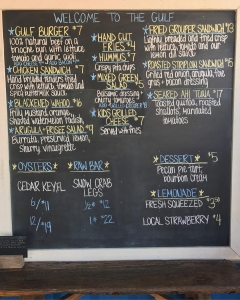 WELCOME TO THE GULF
GULF BURGER $7
100% natural beef on a
brioche bun with lettuce,
tomato and garlic aioli
CHICKEN SANDWICH $7
hand breaded tenders fried
crisp with lettuce, tomato and
BLACKENED WAHOO $16
fruity mustard, orange,
shaved vegetable salad
ARUGULA + FRISEE SALAD $9
Burrata, preserved lemon,
Sherry vinaigrette
HAND CUT
FRIES $4
HUMMUS $7
Crispy pita chips
MIXED GREEN
SALAD
Balsamic dressing
cherry tomatoes
KIDS GRILLED
CHEESE $7
Served with fries
FRIED GROUPER SANDWICH $13
lightly breaded and fried crisp
with lettuce, tomato and our
lemon dill sauce
ROASTED STRIPLOIN SANDWICH $15
Grilled red onion, arugula, blue
bacon dressing
SEARED AHI TUNA $17
Toasted quinoa, roasted
shallots, marinated
tomatoes
OYSTERS
CEDAR KEY, FL
6/$11
12/$19
RAW BAR
SNOW CRAB
LEGS
½# $12
1# $22
DESSERT $5
Pecan Pie tart,
bourbon cream
LEMONADE
FRESH SQUEEZED $3.50
LOCAL STRAWBERRY $4